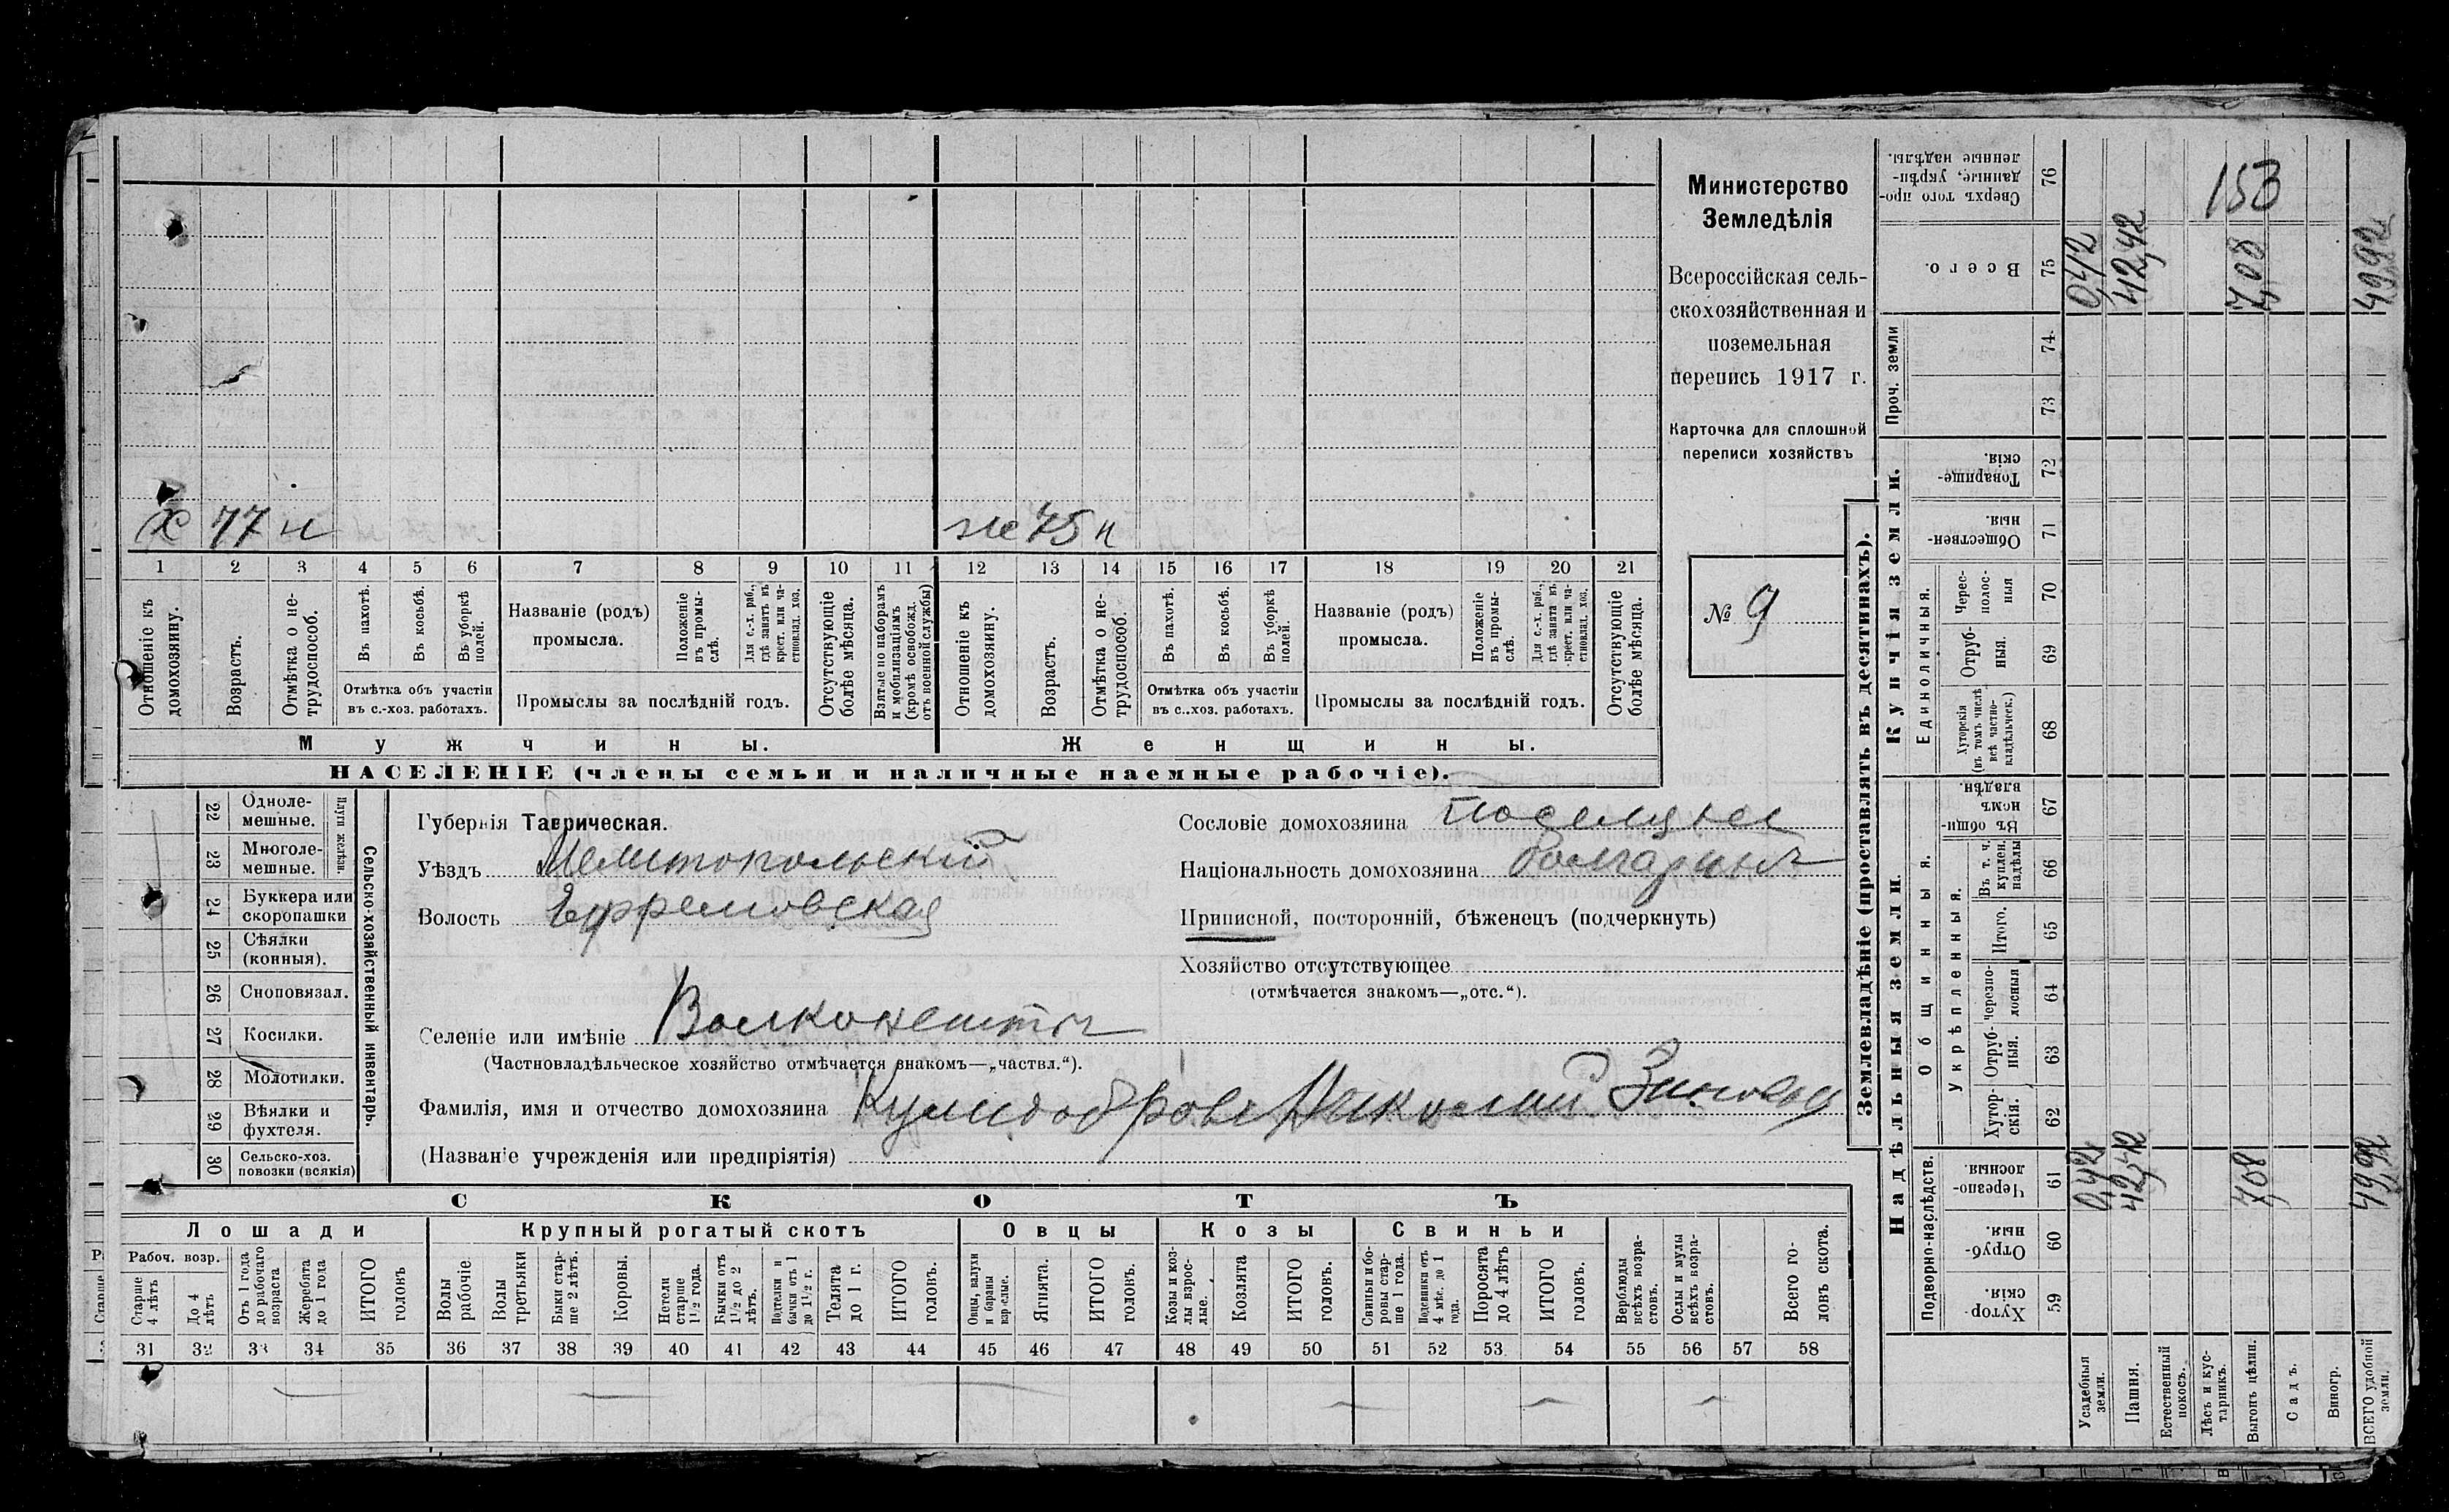 Министерство
Земледѣлія
Всероссійская сель-
скохозяйственная и
поземельная
перепись 1917 г.
Карточка для сплошной
переписи хозяйствъ
№ 9
х 77 н
же 75 н
1 2 3 4 5 6 7 8 9 10 11 12 13 14 15 16 17 18 19 20 21
Отношеніе къ домохозяину.
Возрастъ.
Отмѣтка о не-трудоспособ.
Въ пахотѣ.
Въ косьбѣ.
Въ уборкѣ полей.
Отмѣтка объ участіи
въ с.-хоз. работахъ.
Названіе (родъ)
промысла.
Положеніе въ промы-слѣ.
Для с.-х. раб., гдѣ занятъ въ крест. или ча-стновлад. хоз.
Промыслы за послѣдній годъ.
Отсутствующіе болѣе мѣсяца.
Взятые по наборамъ и мобилизаціямъ (кромѣ освобожд. отъ военной службы)
Отношеніе къ домохозяину.
Возрастъ.
Отмѣтка о не-трудоспособ.
Въ пахотѣ.
Въ косьбѣ.
Въ уборкѣ полей.
Отмѣтка объ участіи
въ с.-хоз. работахъ.
Названіе (родъ)
промысла.
Положеніе въ промы-слѣ.
Для с.-х. раб., гдѣ занятъ въ крест. или ча-стновлад. хоз.
Промыслы за послѣдній годъ.
Отсутствующіе болѣе мѣсяца.
Мужчины.
Женщины.
НАСЕЛЕНІЕ (члены семьи и наличные наемные рабочіе).
Сельско-хозяйственный инвентарь.
Плуги желѣзн.
22 Одноле-мешные.
23 Многоле-мешные.
24 Буккера или скоропашки
25 Сѣялки (конныя).
26 Сноповязал.
27 Косилки.
28 Молотилки.
29 Вѣялки и фухтеля.
30 Сельско-хоз. повозки (всякія)
Губернія Таврическая.
Уѣздъ Мелитопольскій
Волость Ефремовская
Селеніе или имѣніе
(Частновладѣльческое хозяйство отмѣчается знакомъ—„частвл.“).
Фамилія, имя и отчество домохозяина Николай
(Названіе учрежденія или предпріятія)
Сословіе домохозяина поселянъ
Національность домохозяина болгаринъ
Приписной, посторонній, бѣженецъ (подчеркнуть)
Хозяйство отсутствующее
(отмѣчается знакомъ—„отс.“).
СКОТЪ
Лошади
Крупный рогатый скотъ
Овцы
Козы
Свиньи
Рабоч. возр.
Старше 4 лѣтъ
До 4 лѣтъ
Отъ 1 года до рабочаго возраста
Жеребята до 1 года
ИТОГО головъ
Волы рабочіе.
Волы третьяки
Быки стар-ше 2 лѣтъ.
Коровы.
Нетели старше 1½ года.
Бычки отъ 1½ до 2 лѣтъ.
Подтелки и бычки отъ 1 до 1½ г.
Телята до 1 г.
ИТОГО головъ.
Овцы, валухи и бараны взрослые.
Ягнята.
ИТОГО головъ.
Козы и коз-лы взрос-лые.
Козлята
ИТОГО головъ.
Свиньи и бо-ровы стар-ше 1 года.
Подсвинки отъ 4 мѣс. до 1 года.
Поросята до 4 лѣтъ
ИТОГО головъ.
Верблюды всѣхъ возра-стовъ.
Ослы и мулы всѣхъ возра-стовъ.
Всего го-ловъ скота.
31 32 33 34 35 36 37 38 39 40 41 42 43 44 45 46 47 48 49 50 51 52 53 54 55 56 57 58
Землевладѣніе (проставлять въ десятинахъ).
Надѣльныя земли.
Купчія земли.
Проч. земли
Подворно-наслѣдств.
Общинныя.
Укрѣпленныя.
Единоличныя.
Хутор-скія. 59
Отруб-ныя. 60
Черезпо-лосныя. 61
Хутор-скія. 62
Отруб-ныя. 63
Черезпо-лосныя 64
Итого. 65
Въ т. ч. куплен. надѣлы 66
Въ общи-номъ владѣн. 67
Хуторскія (въ томъ числѣ всѣ частно-владѣльческ.) 68
Отруб-ныя. 69
Черес-полос-ныя 70
Обществен-ныя. 71
Товарище-скія. 72
73
74
Всего. 75
Сверхъ того про-данные, укрѣп-ленные надѣлы. 76
Усадебныя земли.
Пашня.
Естественный покосъ.
Лѣсъ и кус-тарникъ.
Выгонъ цѣлин.
Садъ.
Виногр.
ВСЕГО удобной земли.
0,42 42,42 7,08 49,92
0,42 42,42 7,08 49,92
153